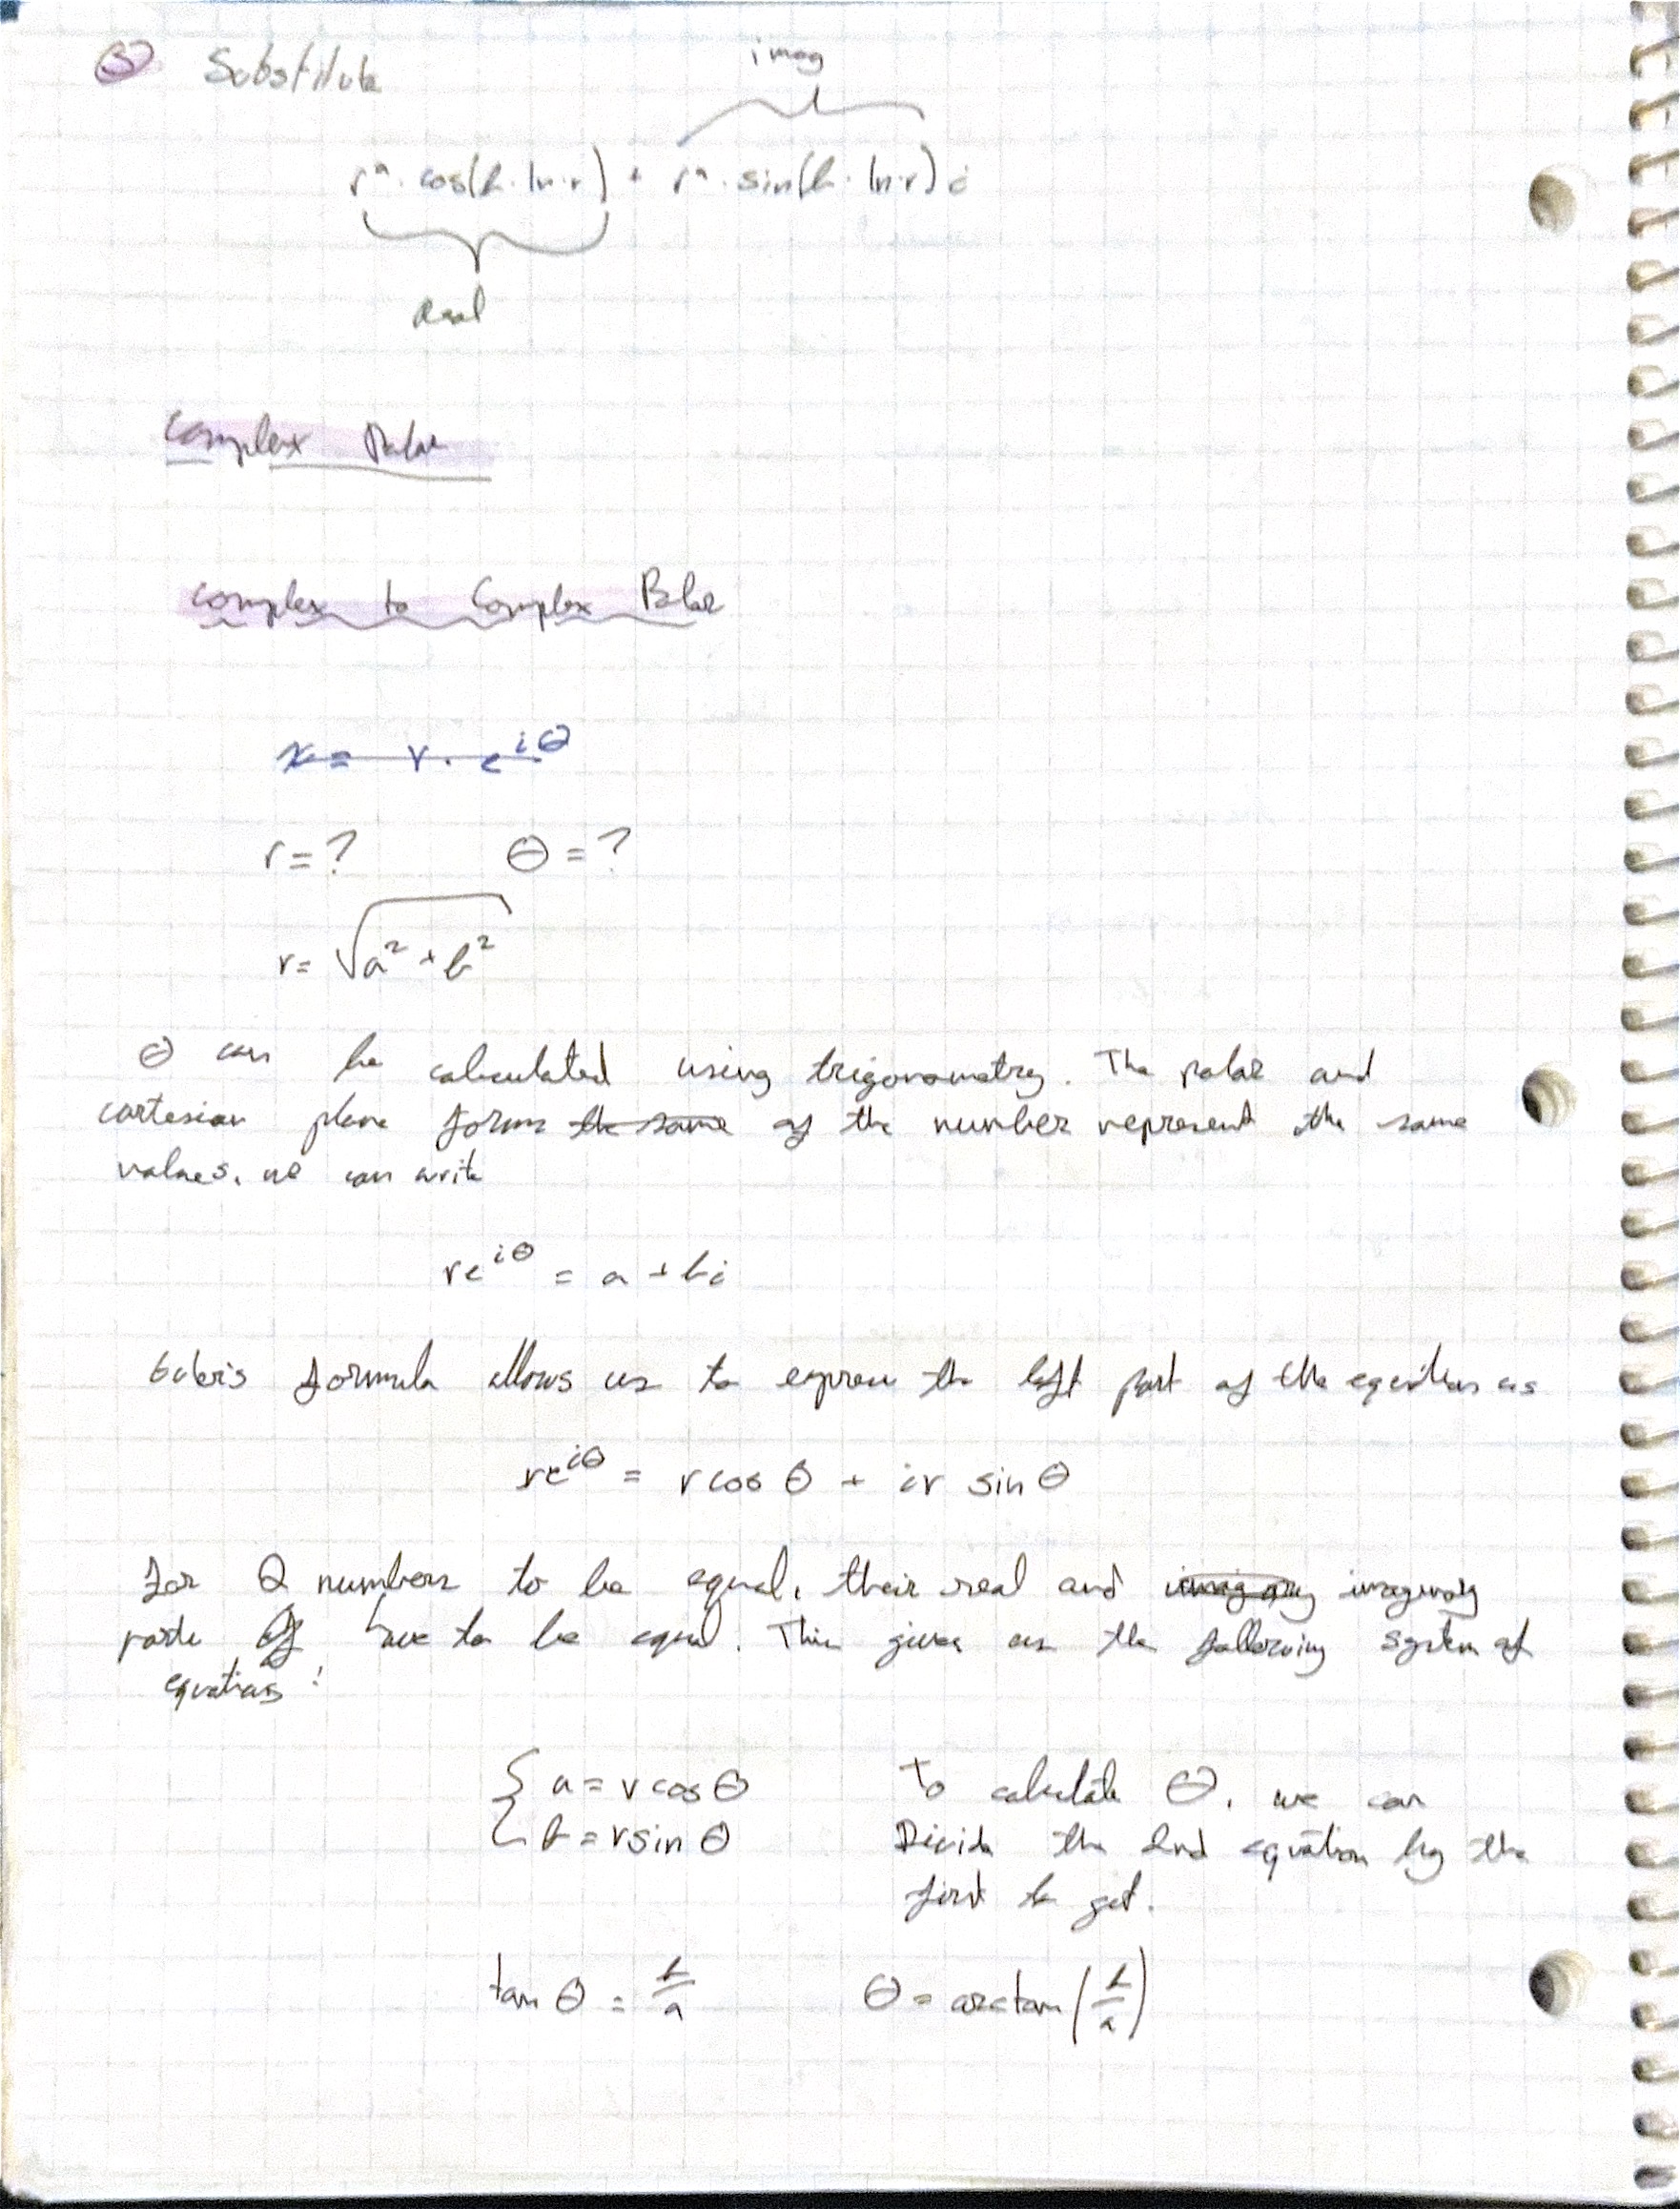 ③ Substitute
imag
rᵃ · cos(b · ln r) + rᵃ · sin(b · ln r) i
Real
Complex Polar
Complex to Complex Polar
x = r · e^{iθ}
r = ? θ = ?
r = √(a² + b²)
θ can be calculated using trigonometry. The polar and
cartesian plane forms the same of the number represent the same
values, we can write
re^{iθ} = a + bi
Euler's formula allows us to express the left part of the equation as
re^{iθ} = r cos θ + ir sin θ
For 2 numbers to be equal, their real and imaginary imaginary
parts have to be equal. This gives us the following system of
equations:
{ a = r cos θ
b = r sin θ
To calculate θ, we can
Divide the 2nd equation by the
first to get.
tan θ = b/a θ = arctan(b/a)